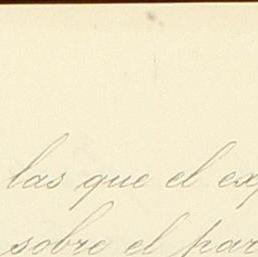 las que el ex
sobre el par